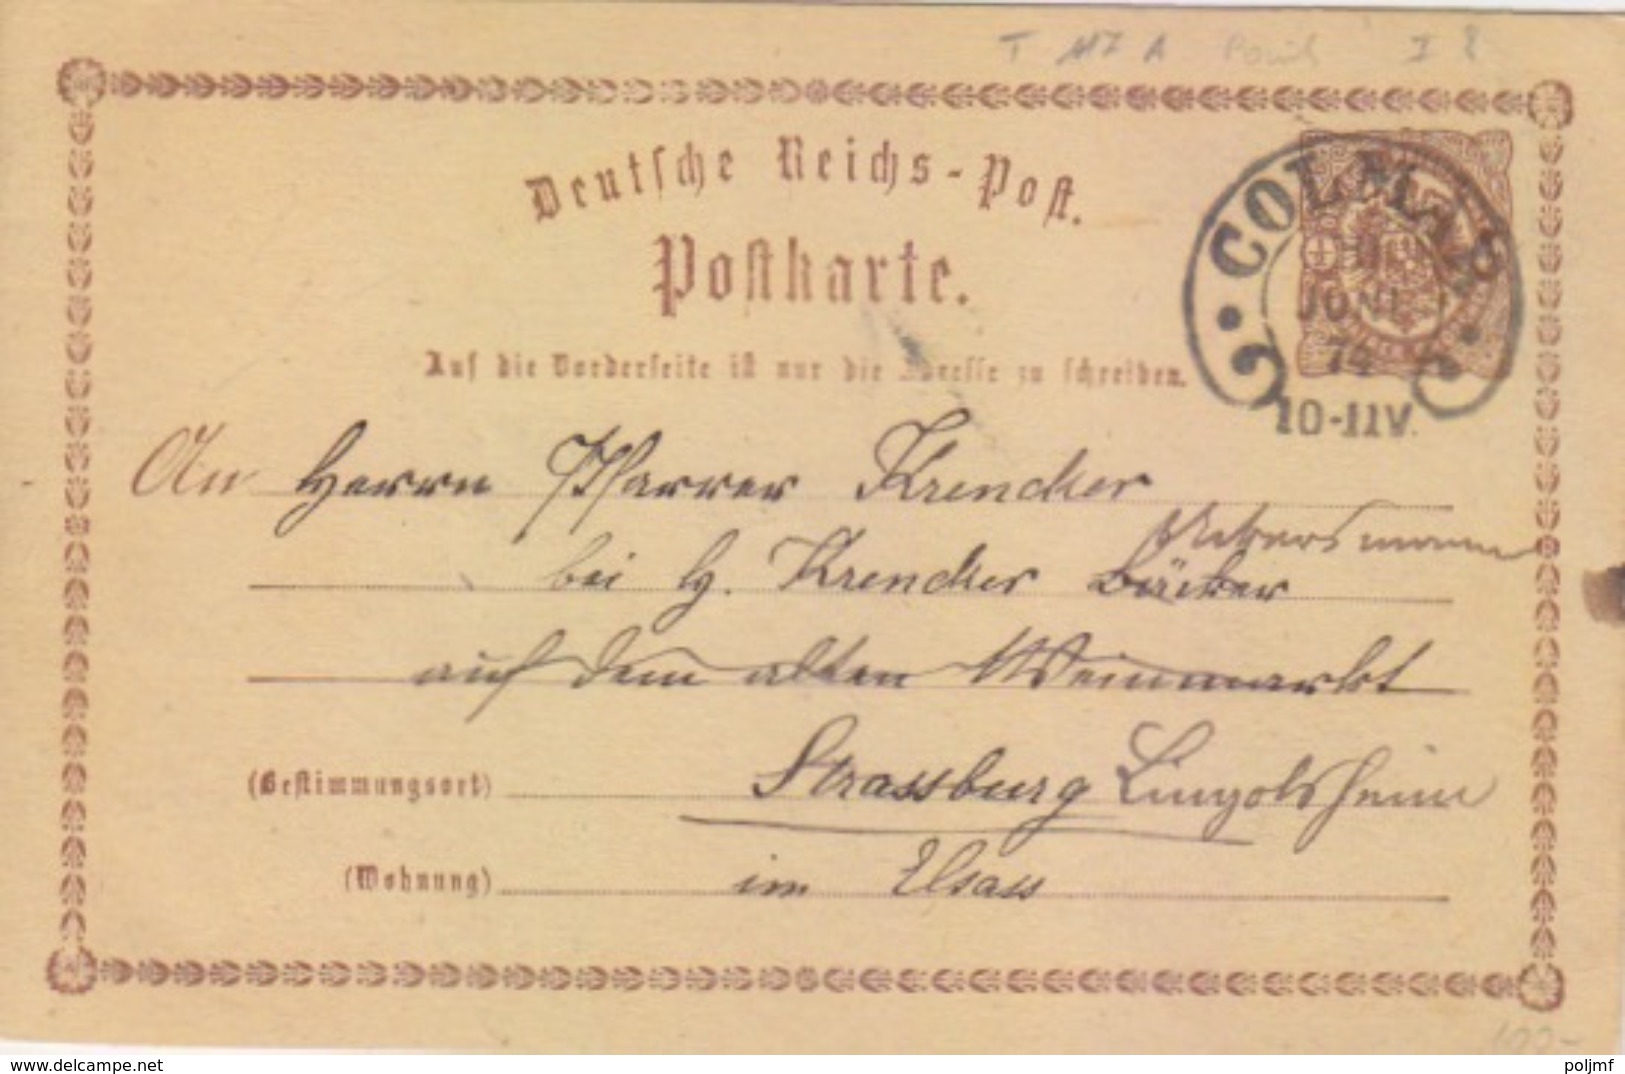 T A I 8
Deutsche Reichs-Post.
Postkarte.
Auf die Vorderseite ist nur die Adresse zu schreiben.
COLMAR
JUNI
74
10-11V.
An Herrn Pfarrer Krencker
Ackersmann
bei H. Krencker Bäcker
auf dem alten Weinmarkt
(Bestimmungsort) Strassburg Lingolsheim
(Wohnung) im Elsass
100-
delcampe.net
poljmf